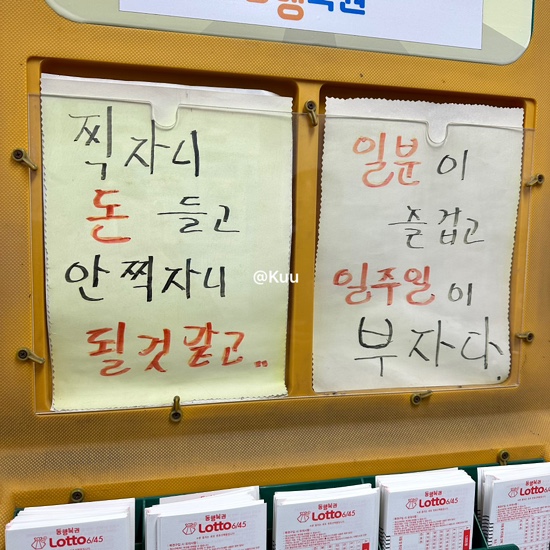 찍자니
돈 들고
안찍자니
될것 같고..
일분이
즐겁고
일주일이
부자다.
@Kuu
동행복권
Lotto 6/45
동행복권
Lotto 6/45
동행복권
Lotto 6/45
동행복권
Lotto 6/45
동행복권
Lotto 6/45